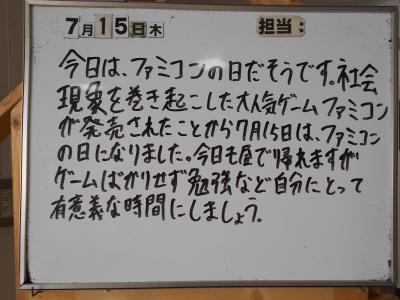 7月15日木 担当:
今日は、ファミコンの日だそうです。社会
現象を巻き起こした大人気ゲームファミコン
が発売されたことから7月15日は、ファミコン
の日になりました。今日も昼で帰れますが
ゲームばかりせず勉強など自分にとって
有意義な時間にしましょう。